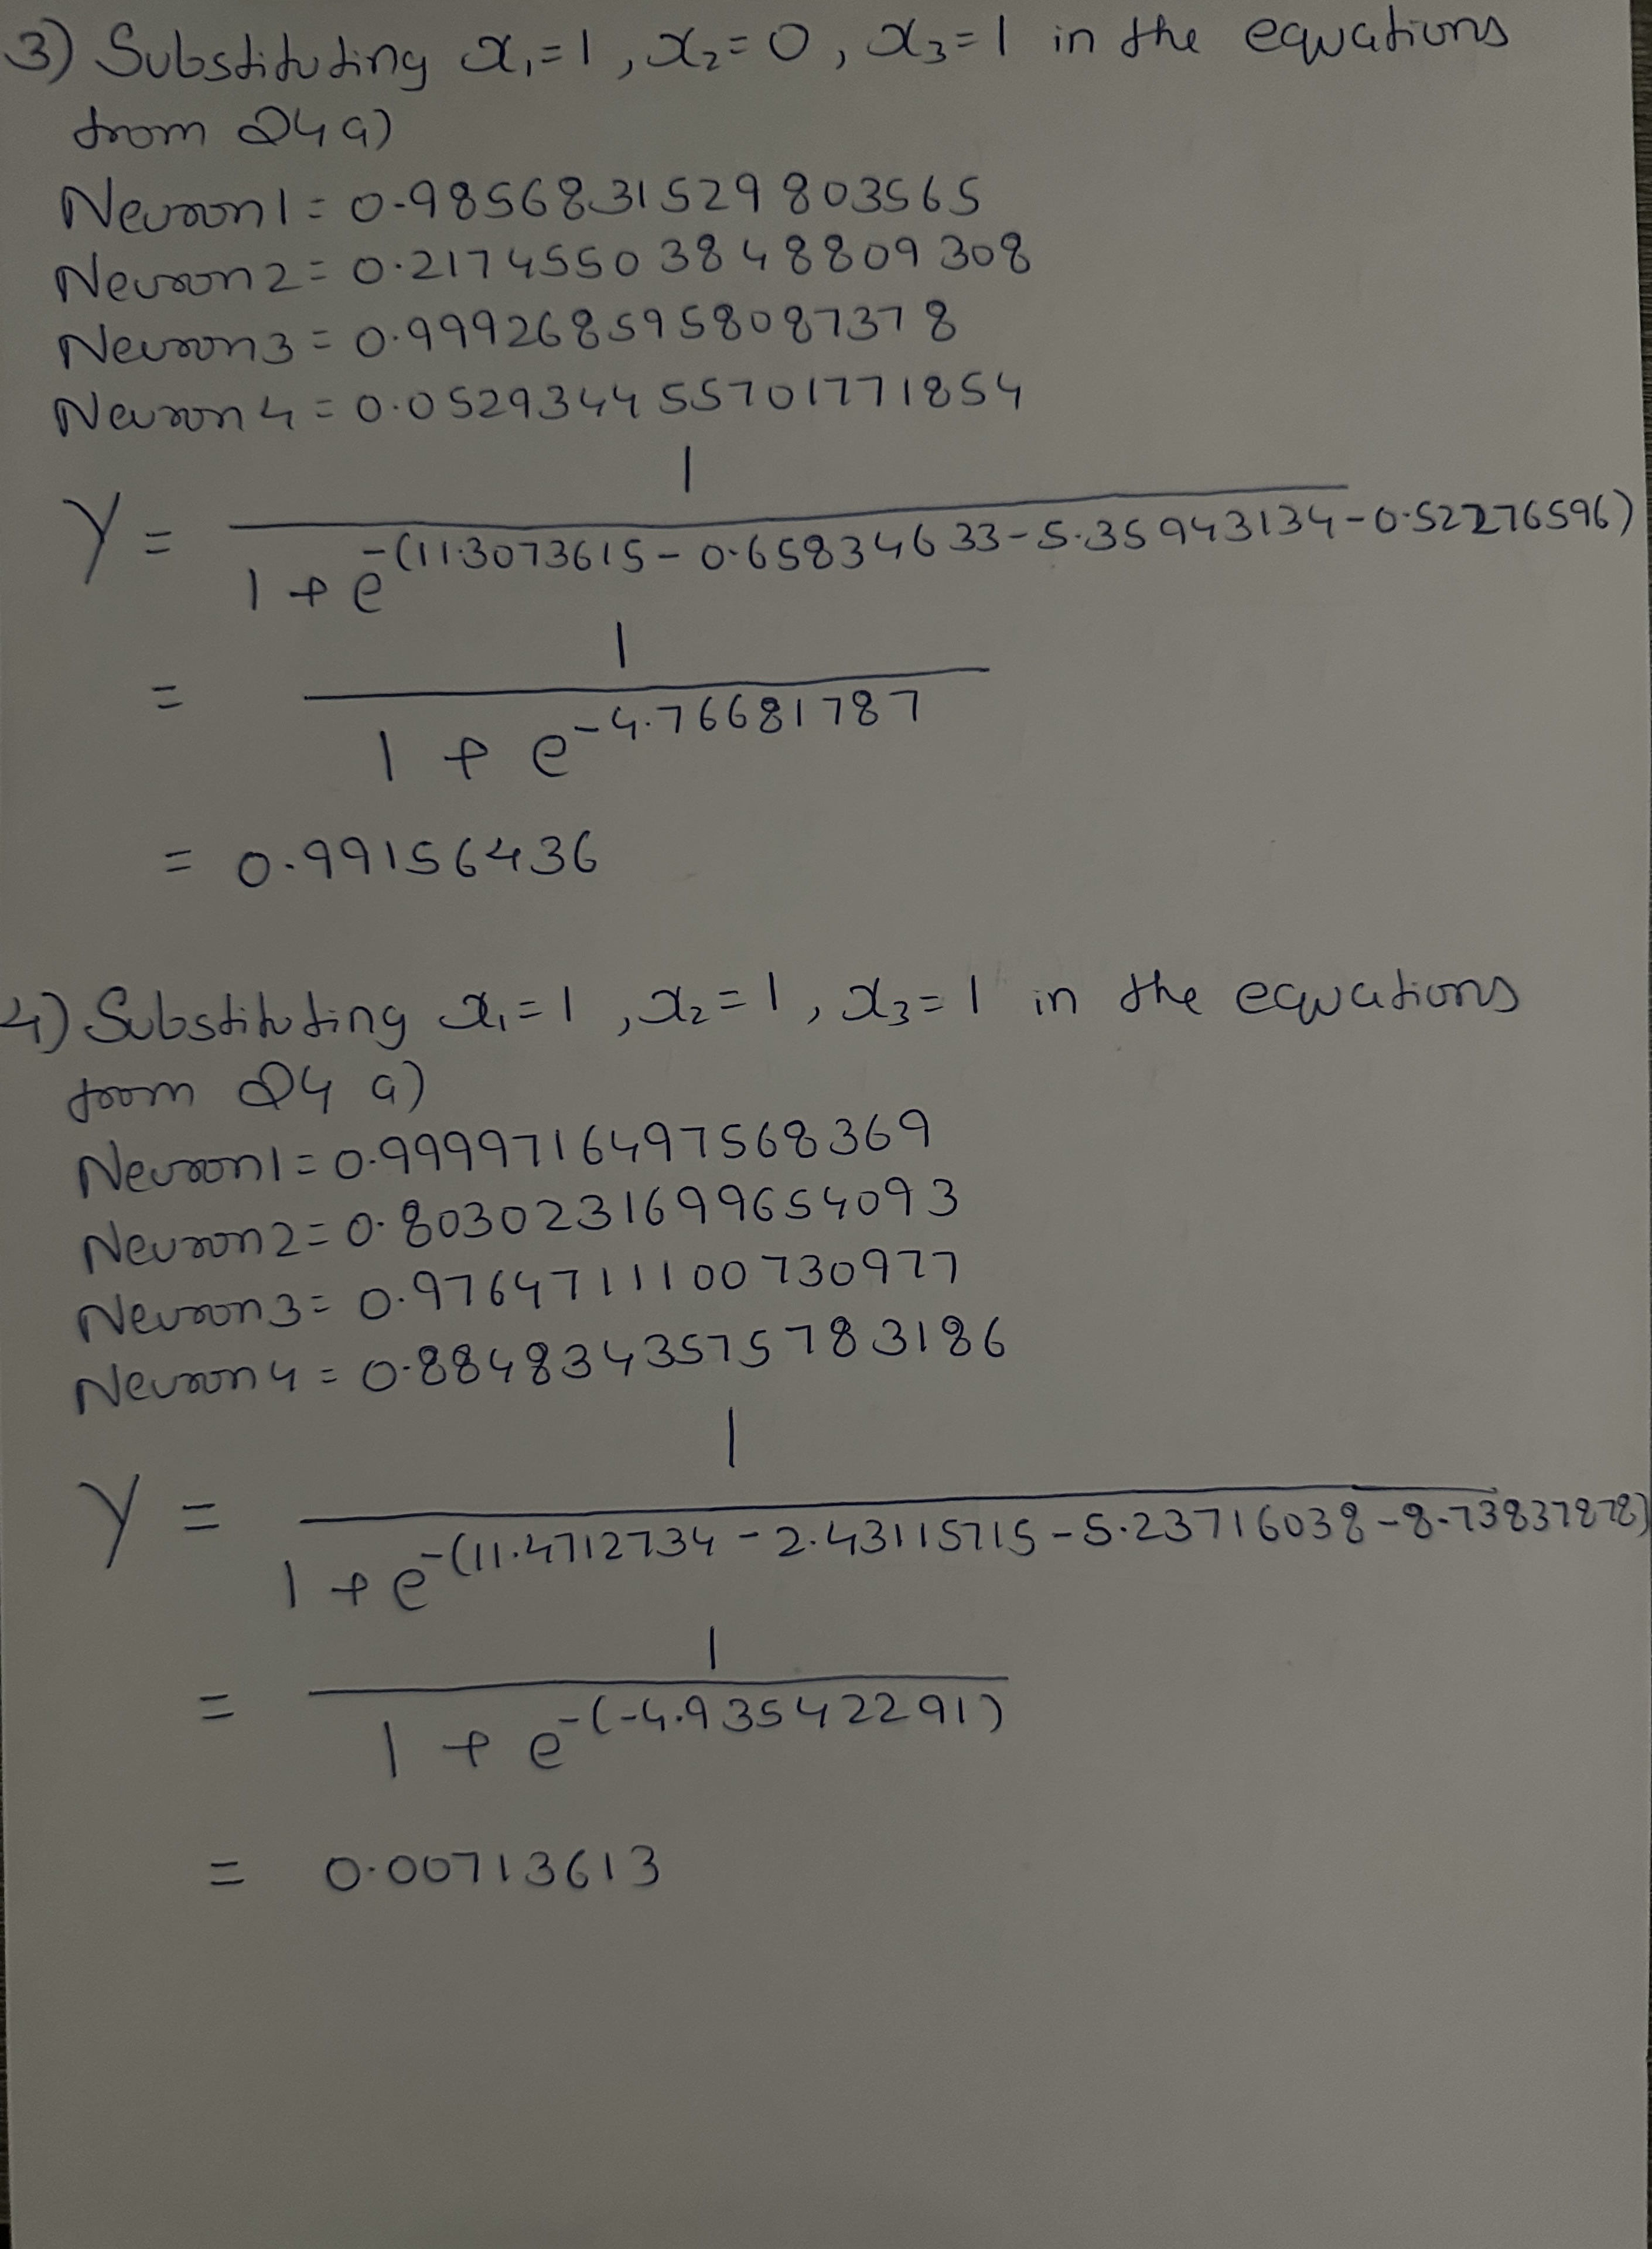 3) Substituting x₁=1, x₂=0, x₃=1 in the equations
from Q4 a)
Neuron1 = 0.9856831529803565
Neuron2 = 0.21745503848809308
Neuron3 = 0.9992685958087378
Neuron4 = 0.052934455701771854
1
Y =
1 + e^-(11.3073615 - 0.658834633 - 5.35943134 - 0.52276596)
1
=
1 + e^-4.76681787
= 0.99156436
4) Substituting x₁=1, x₂=1, x₃=1 in the equations
from Q4 a)
Neuron1 = 0.9999716497568369
Neuron2 = 0.8030231699654093
Neuron3 = 0.9764711100730977
Neuron4 = 0.8848343575783186
1
Y =
1 + e^-(11.4712734 - 2.43115715 - 5.23716038 - 8.73837878)
1
=
1 + e^-(-4.935422291)
= 0.00713613